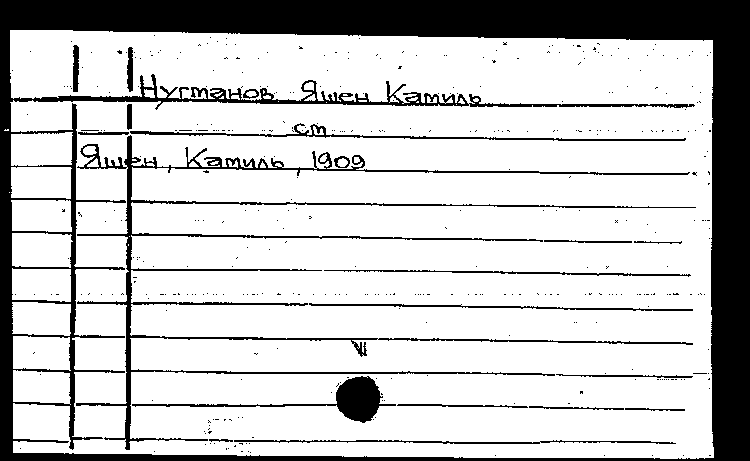 Нугманов Яшен Камиль
см
Яшен, Камиль, 1909
VI